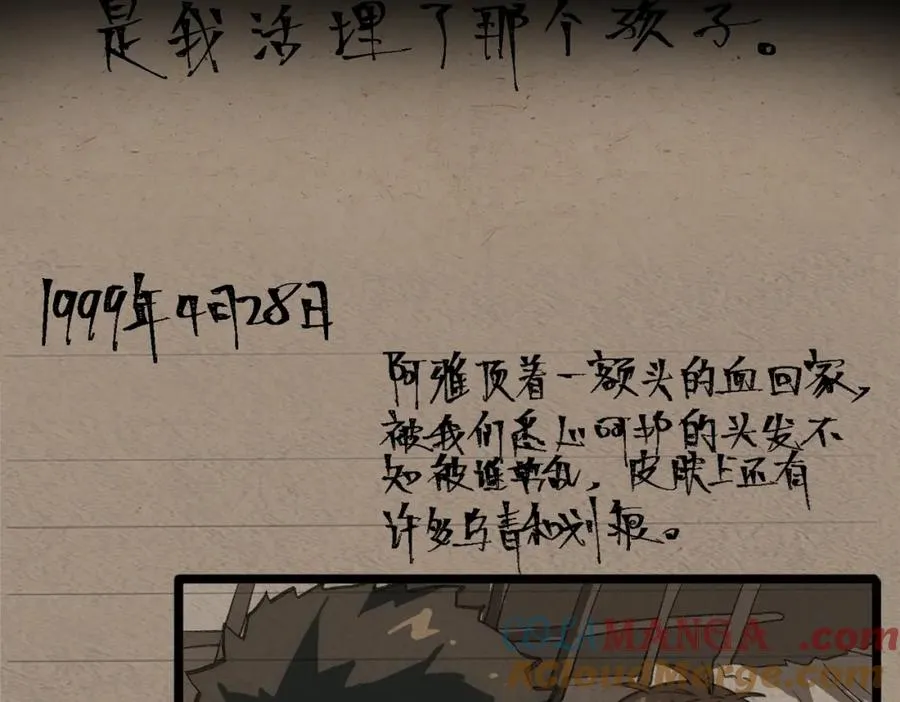 是我活埋了那个孩子。
1999年4月28日
阿雅顶着一额头的血回家，
被我们悉心呵护的头发不
知被谁弄乱，皮肤上还有
许多乌青和划痕。
COLAMANGA.com
ACloudMerge.com